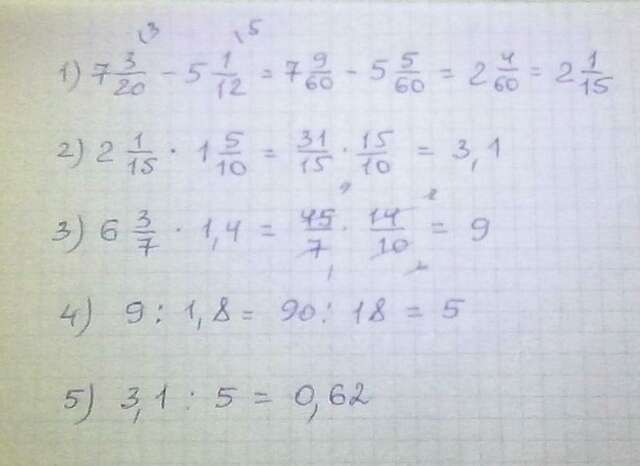 1) 7 3/20 - 5 1/12 = 7 9/60 - 5 5/60 = 2 4/60 = 2 1/15
2) 2 1/15 · 1 5/10 = 31/15 · 15/10 = 3,1
3) 6 3/7 · 1,4 = 45/7 · 14/10 = 9
4) 9 : 1,8 = 90 : 18 = 5
5) 3,1 : 5 = 0,62